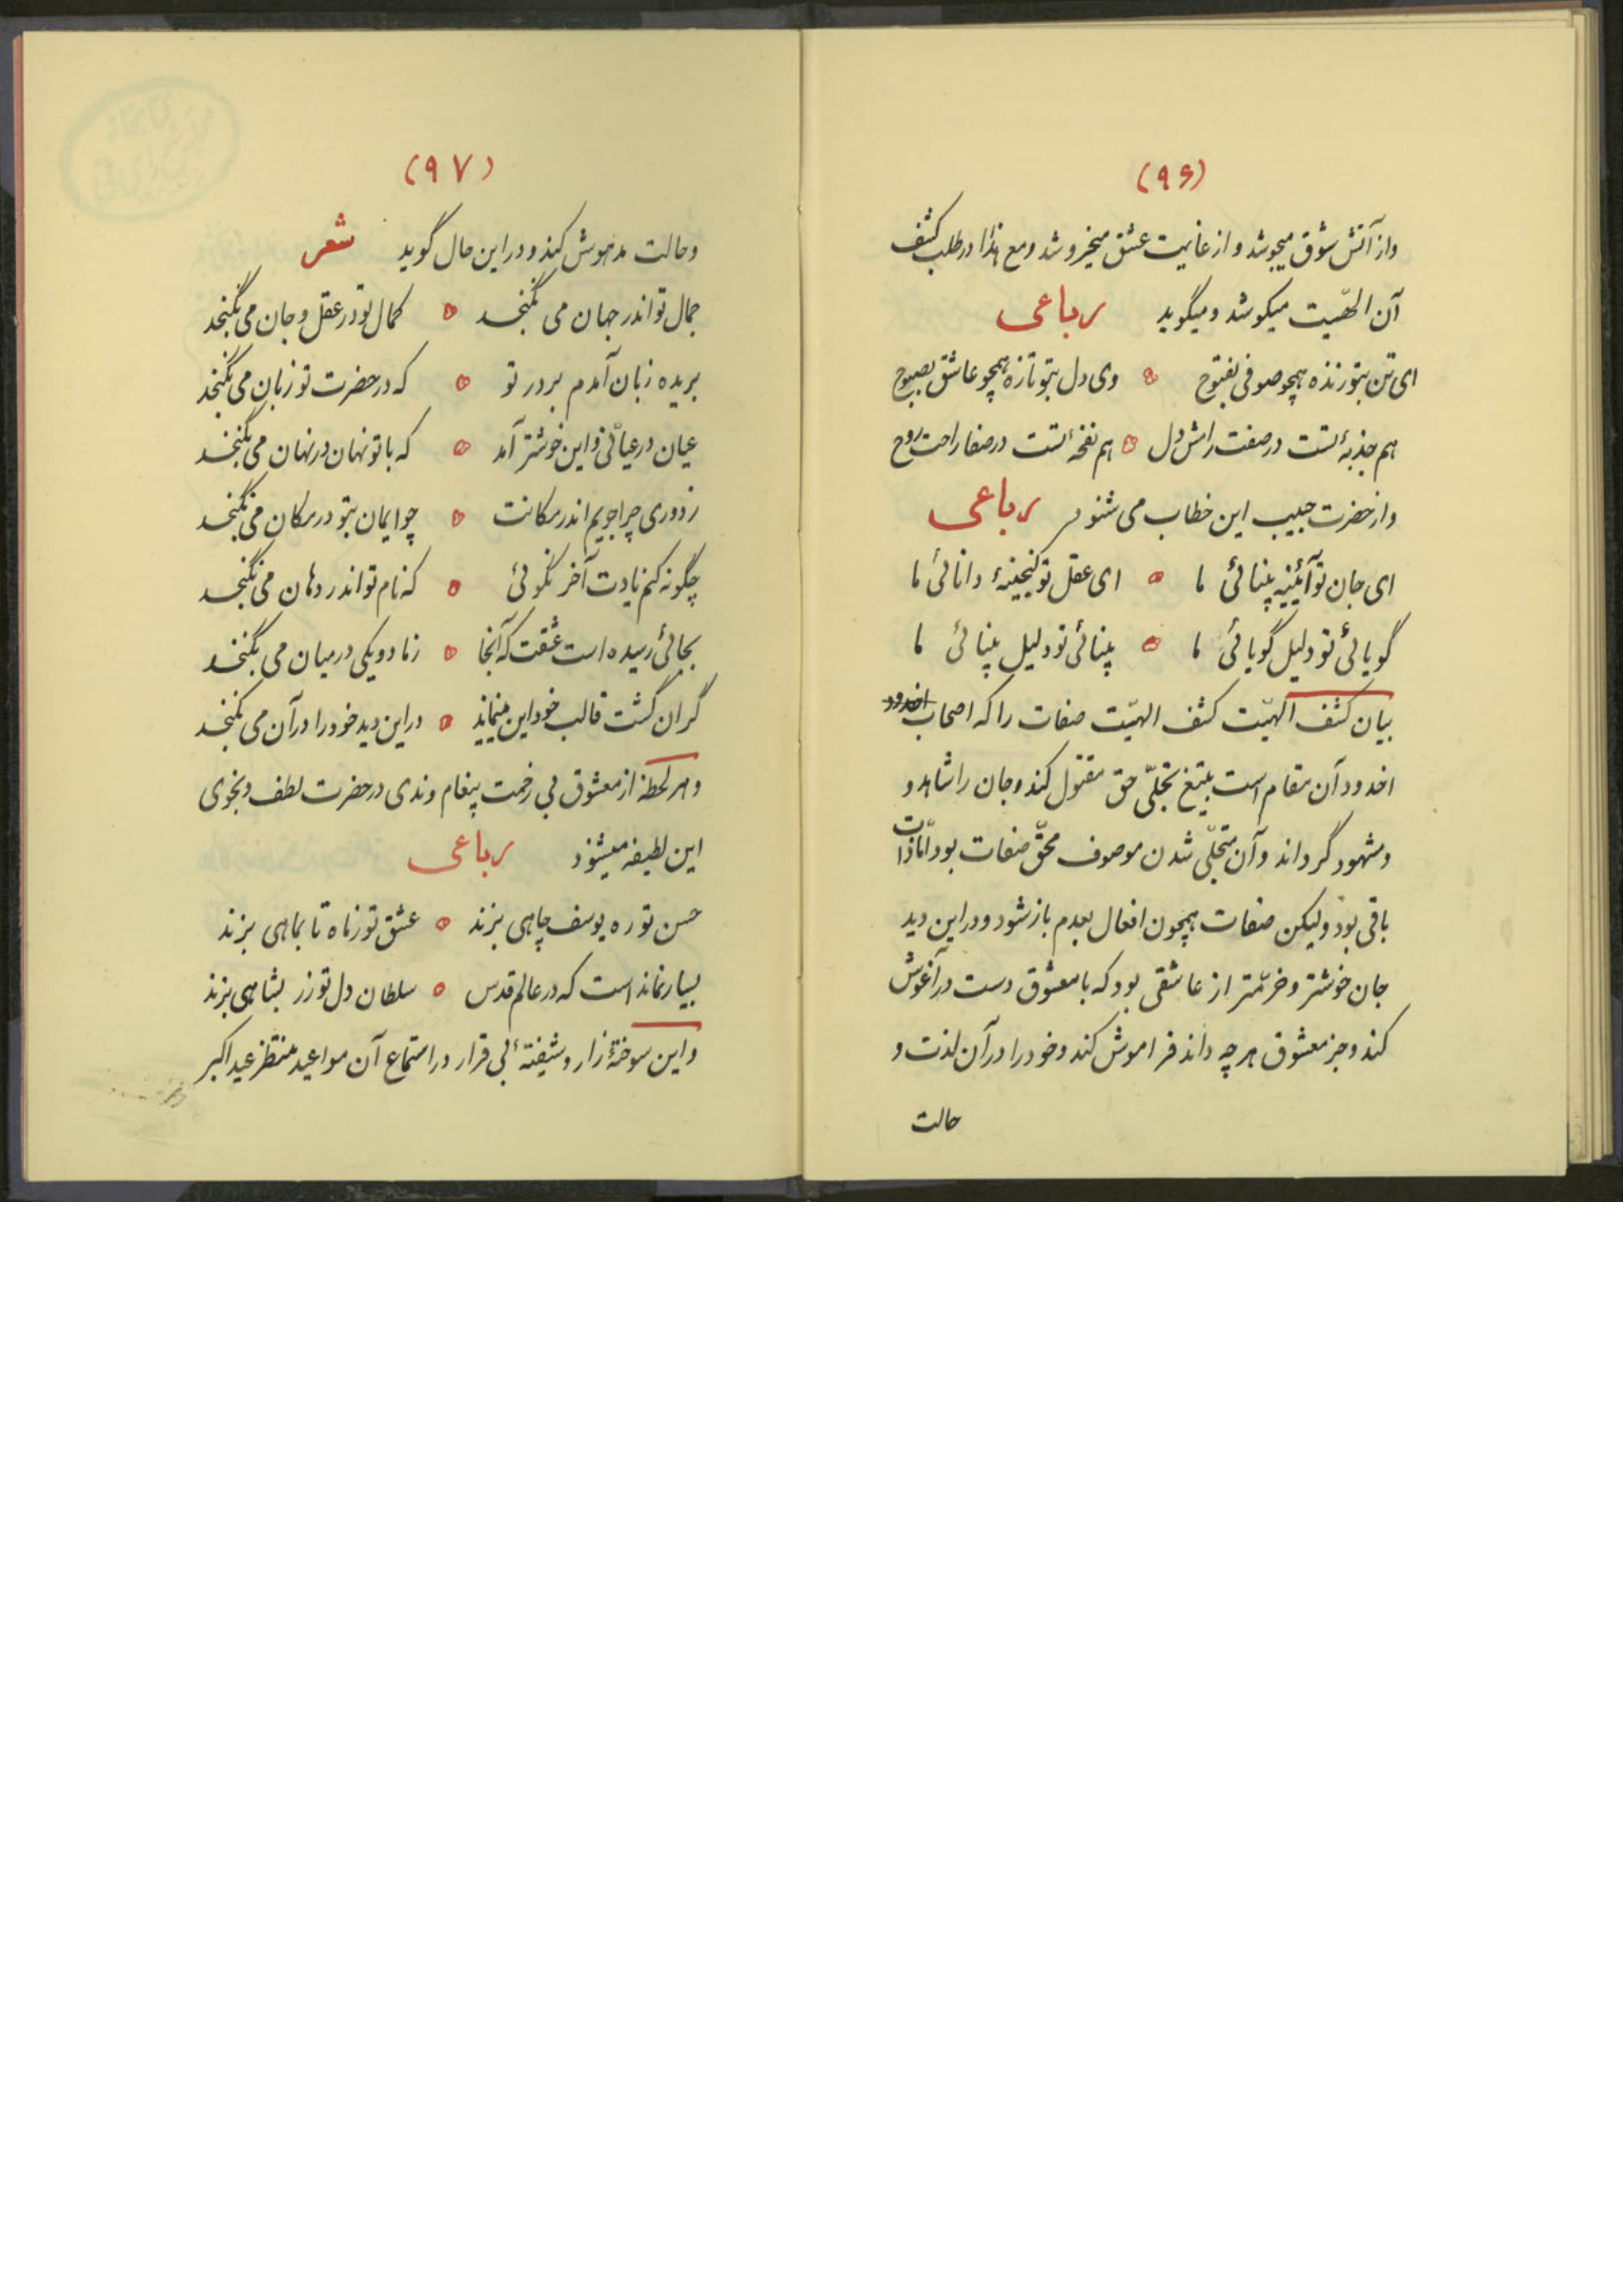 (۹۶)
واز آتش شوق میجوشد و از غایت عشق میخروشد ومع هذا در طلب کشف
آن الهیّت میکوشد و میگوید رباعی
ای تن بتو زنده همچو صوفی بفتوح وی دل بتو تازه همچو عاشق بصبوح
هم جذبهٔ تست در صفت رامش دل هم نفخهٔ تست در صفا راحت روح
واز حضرت حبیب این خطاب می شنود رباعی
ای جان تو آئینه بینائی ما ای عقل تو گنجینهٔ دانائی ما
گویائی تو دلیل گویائی ما بینائی تو دلیل بینائی ما
بیان کشف الهیّت کشف الهیّت صفات را که اصحاب اخدود
اخدود آن مقام است بتیغ تجلّی حق مقتول کند و جان را شاهد و
ومشهود گرداند و آن متجلّی شدن موصوف محقّ صفات بود امّا ذات
باقی بود ولیکن صفات همچون افعال بعدم باز شود و در این دید
جان خوشتر و خرّمتر از عاشقی بود که با معشوق دست در آغوش
کند و جز معشوق هر چه داند فراموش کند و خود را در آن لذت و
حالت
(۹۷)
وحالت مدهوش کند و در این حال گوید شعر
جمال تو اندر جهان می نگنجد کمال تو در عقل و جان می نگنجد
بریده زبان آمدم بر در تو که در حضرت تو زبان می نگنجد
عیان در عیانی و این خوشتر آمد که با تو نهان در نهان می نگنجد
ز دوری چرا جویم اندر مکانت چو ایمان بتو در مکان می نگنجد
چگونه کنم یادت آخر نگوئی که نام تو اندر دهان می نگنجد
بجائی رسیده است عشقت که آنجا ز ما دو یکی در میان می نگنجد
گران گشت قالب خود این مینماید در این دید خود را در آن می نگنجد
و هر لحظه از معشوق بی زحمت پیغام و ندی در حضرت لطف و نجوی
این لطیفه میشنود رباعی
حسن تو ره یوسف چاهی بزند عشق تو ز ماه تا بماهی بزند
بسیار نماند است که در عالم قدس سلطان دل تو زر بشاهی بزند
و این سوختهٔ زار و شیفتهٔ بی قرار در استماع آن مواعید منتظر عید اکبر